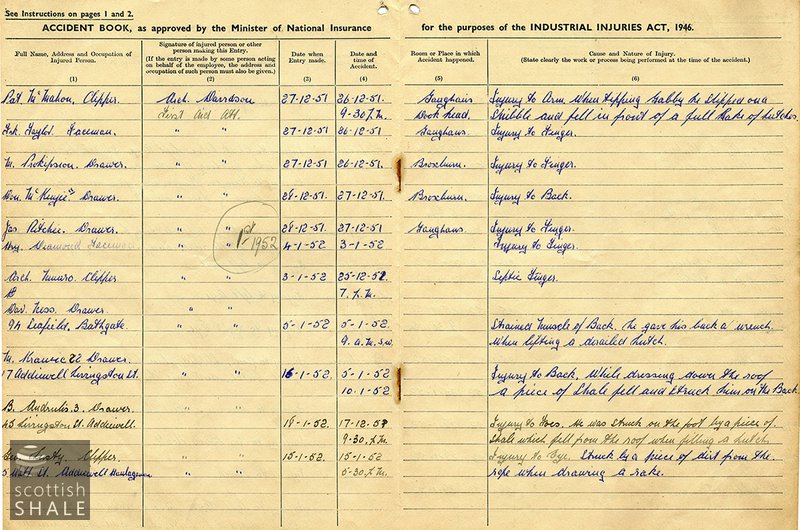 See Instructions on pages 1 and 2.
ACCIDENT BOOK, as approved by the Minister of National Insurance for the purposes of the INDUSTRIAL INJURIES ACT, 1946.
Full Name, Address and Occupation of Injured Person.
(1)
Signature of injured person or other person making this Entry.
(If the entry is made by some person acting on behalf of the employee, the address and occupation of such person must also be given.)
(2)
Date when Entry made.
(3)
Date and time of Accident.
(4)
Room or Place in which Accident happened.
(5)
Cause and Nature of Injury.
(State clearly the work or process being performed at the time of the accident.)
(6)
Pat. McMahon, Clipper. Arch. Davidson 27-12-51 26-12-51. Injury to Arm. When tipping he slipped on a
First Aid Att. 9-30 P.M. Dook head. and fell in front of a full Rake of hutches.
Taylor. Faceman. " " 27-12-51 26-12-51 Injury to Finger.
M. Prokipson. Drawer. " " 27-12-51 26-12-51 Broxburn. Injury to Finger.
Don. McKenzie Drawer. " " 28-12-51. 27-12-51 Broxburn. Injury to Back.
Jas Ritchie. Drawer. " " 28-12-51 27-12-51 Injury to Finger.
Hry. Diamond Faceman " " 1st 1952 4-1-52 3-1-52 Injury to Finger.
Arch. Munro. Clipper " " 3-1-52 25-12-52 Septic Finger.
7. P.M.
Dav. Ness. Drawer. " "
94 Leafield, Bathgate. 5-1-52 5-1-52 Strained Muscle of Back. he gave his back a wrench
9. A.M. when lifting a derailed hutch.
M. Drawer.
17 Addiewell Livingston St. " " 16-1-52 5-1-52 Injury to Back. While dressing down the roof
10.1.52 a piece of Shale fell and struck him on the Back.
B. Andrulis. 3. Drawer. " "
45 Livingston St. Addiewell. 18-1-52 17-12-51 Injury to Toes. He was struck on the foot by a piece of
9-30. P.M. Shale which fell from the roof when filling a hutch.
Clipper. " " 15-1-52. 15-1-52 Injury to Eye. Struck by a piece of dirt from the
5 Watt St. Addiewell " " 5-30. P.M. rope when drawing a rake.
scottish
SHALE